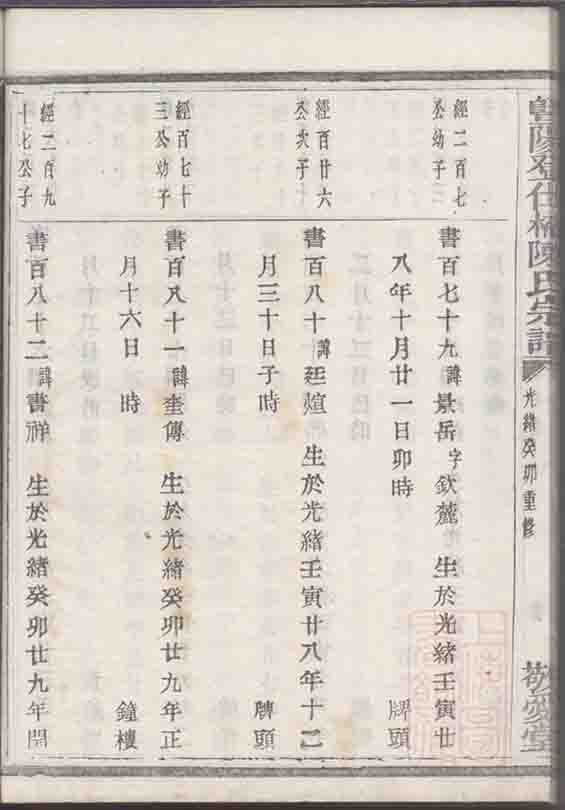 陽登仕橋陳氏宗譜
光緒癸卯重修
敬愛堂
經二百七
公幼子三
書百七十九諱景岳字欽麓 生於光緒壬寅廿
八年十月廿一日卯時 牌頭
經百廿六
公次子十
書百八十諱廷煊 生於光緒壬寅廿八年十二
月三十日子時 牌頭
經百七十
三公幼子
書百八十一諱奎傳 生於光緒癸卯廿九年正
月十六日 時 鐘樓
經二百九
十七公子
書百八十二諱書祥 生於光緒癸卯廿九年開